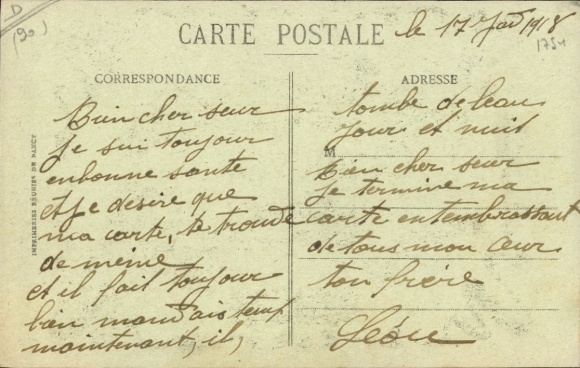 D
(90)
CARTE POSTALE
le 17 Jan 1918
1754
CORRESPONDANCE
ADRESSE
IMPRIMERIES RÉUNIES DE NANCY
M
Bien cher seur
je sui toujour
enbonne sante
et je désire que
ma carte, te trouve
de même
et il fait toujour
bien mauvais temp
maintenant, il,
tombe de leau
jour et nuit
Bien cher seur
je termine ma
carte entembrassant
de tous mon cœur
ton frère
Léon